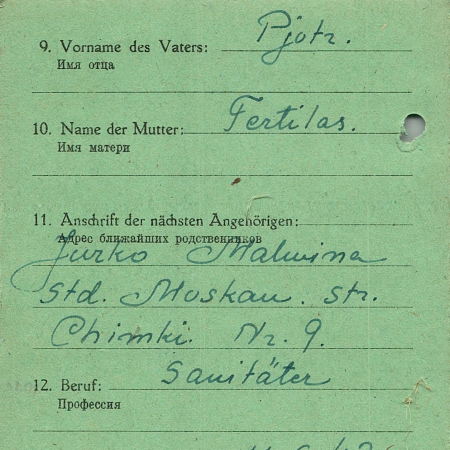 Pjotr.
9. Vorname des Vaters:
Имя отца
Fertilas.
10. Name der Mutter:
Имя матери
11. Anschrift der nächsten Angehörigen:
Адрес ближайших родственников
Jurko Malwina
Std. Moskau. str.
Chimki. Nr. 9.
Sanitäter
12. Beruf:
Профессия